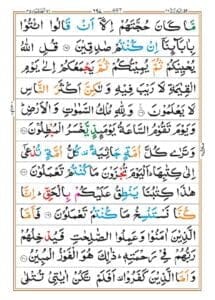 مَّا كَانَ حُجَّتَهُمْ اِلَّاۤ اَنْ قَالُوا ائْتُوْا
بِاٰبَآئِنَاۤ اِنْ كُنْتُمْ صٰدِقِیْنَ ۝ قُلِ اللّٰهُ
یُحْیِیْكُمْ ثُمَّ یُمِیْتُكُمْ ثُمَّ یَجْمَعُكُمْ اِلٰی یَوْمِ
الْقِیٰمَةِ لَا رَیْبَ فِیْهِ وَلٰكِنَّ اَكْثَرَ النَّاسِ
لَا یَعْلَمُوْنَ ۝ وَلِلّٰهِ مُلْكُ السَّمٰوٰتِ وَالْاَرْضِ
وَیَوْمَ تَقُوْمُ السَّاعَةُ یَوْمَئِذٍ یَّخْسَرُ الْمُبْطِلُوْنَ ۝
وَتَرٰی كُلَّ اُمَّةٍ جَاثِیَةً كُلُّ اُمَّةٍ تُدْعٰۤی
اِلٰی كِتٰبِهَا اَلْیَوْمَ تُجْزَوْنَ مَا كُنْتُمْ تَعْمَلُوْنَ ۝
هٰذَا كِتٰبُنَا یَنْطِقُ عَلَیْكُمْ بِالْحَقِّ اِنَّا
كُنَّا نَسْتَنْسِخُ مَا كُنْتُمْ تَعْمَلُوْنَ ۝ فَاَمَّا
الَّذِیْنَ اٰمَنُوْا وَعَمِلُوا الصّٰلِحٰتِ فَیُدْخِلُهُمْ
رَبُّهُمْ فِیْ رَحْمَتِهٖ ذٰلِكَ هُوَ الْفَوْزُ الْمُبِیْنُ ۝
وَاَمَّا الَّذِیْنَ كَفَرُوْا اَفَلَمْ تَكُنْ اٰیٰتِیْ تُتْلٰی